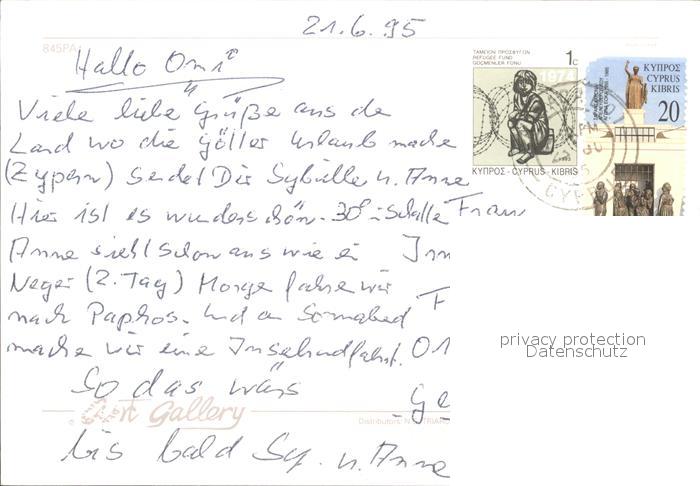 21.6.95
845PA
Hallo Omi
Viele liebe Grüße aus de
Land wo die Götter Urlaub mache
(Zypern) sendet Dir Sybille u. Anne
Hier ist es wunderschön. 30° i. Schatte
Frau
Anne sieht schon aus wie ei
Neger (2. Tag) Morge fahre wir
F
nach Paphos. Und am Sonnabed
mache wir eine Inselrundfahrt.
01
So das wärs
Ge
bis bald Sy. u. Anne
Art Gallery
Distributors: N.
ΤΑΜΕΙΟΝ ΠΡΟΣΦΥΓΩΝ
REFUGEE FUND
GÖÇMENLER FONU
1c
1974
ΚΥΠΡΟΣ - CYPRUS - KIBRIS
ΚΥΠΡΟΣ
CYPRUS
KIBRIS
20
CYPRUS
privacy protection
Datenschutz